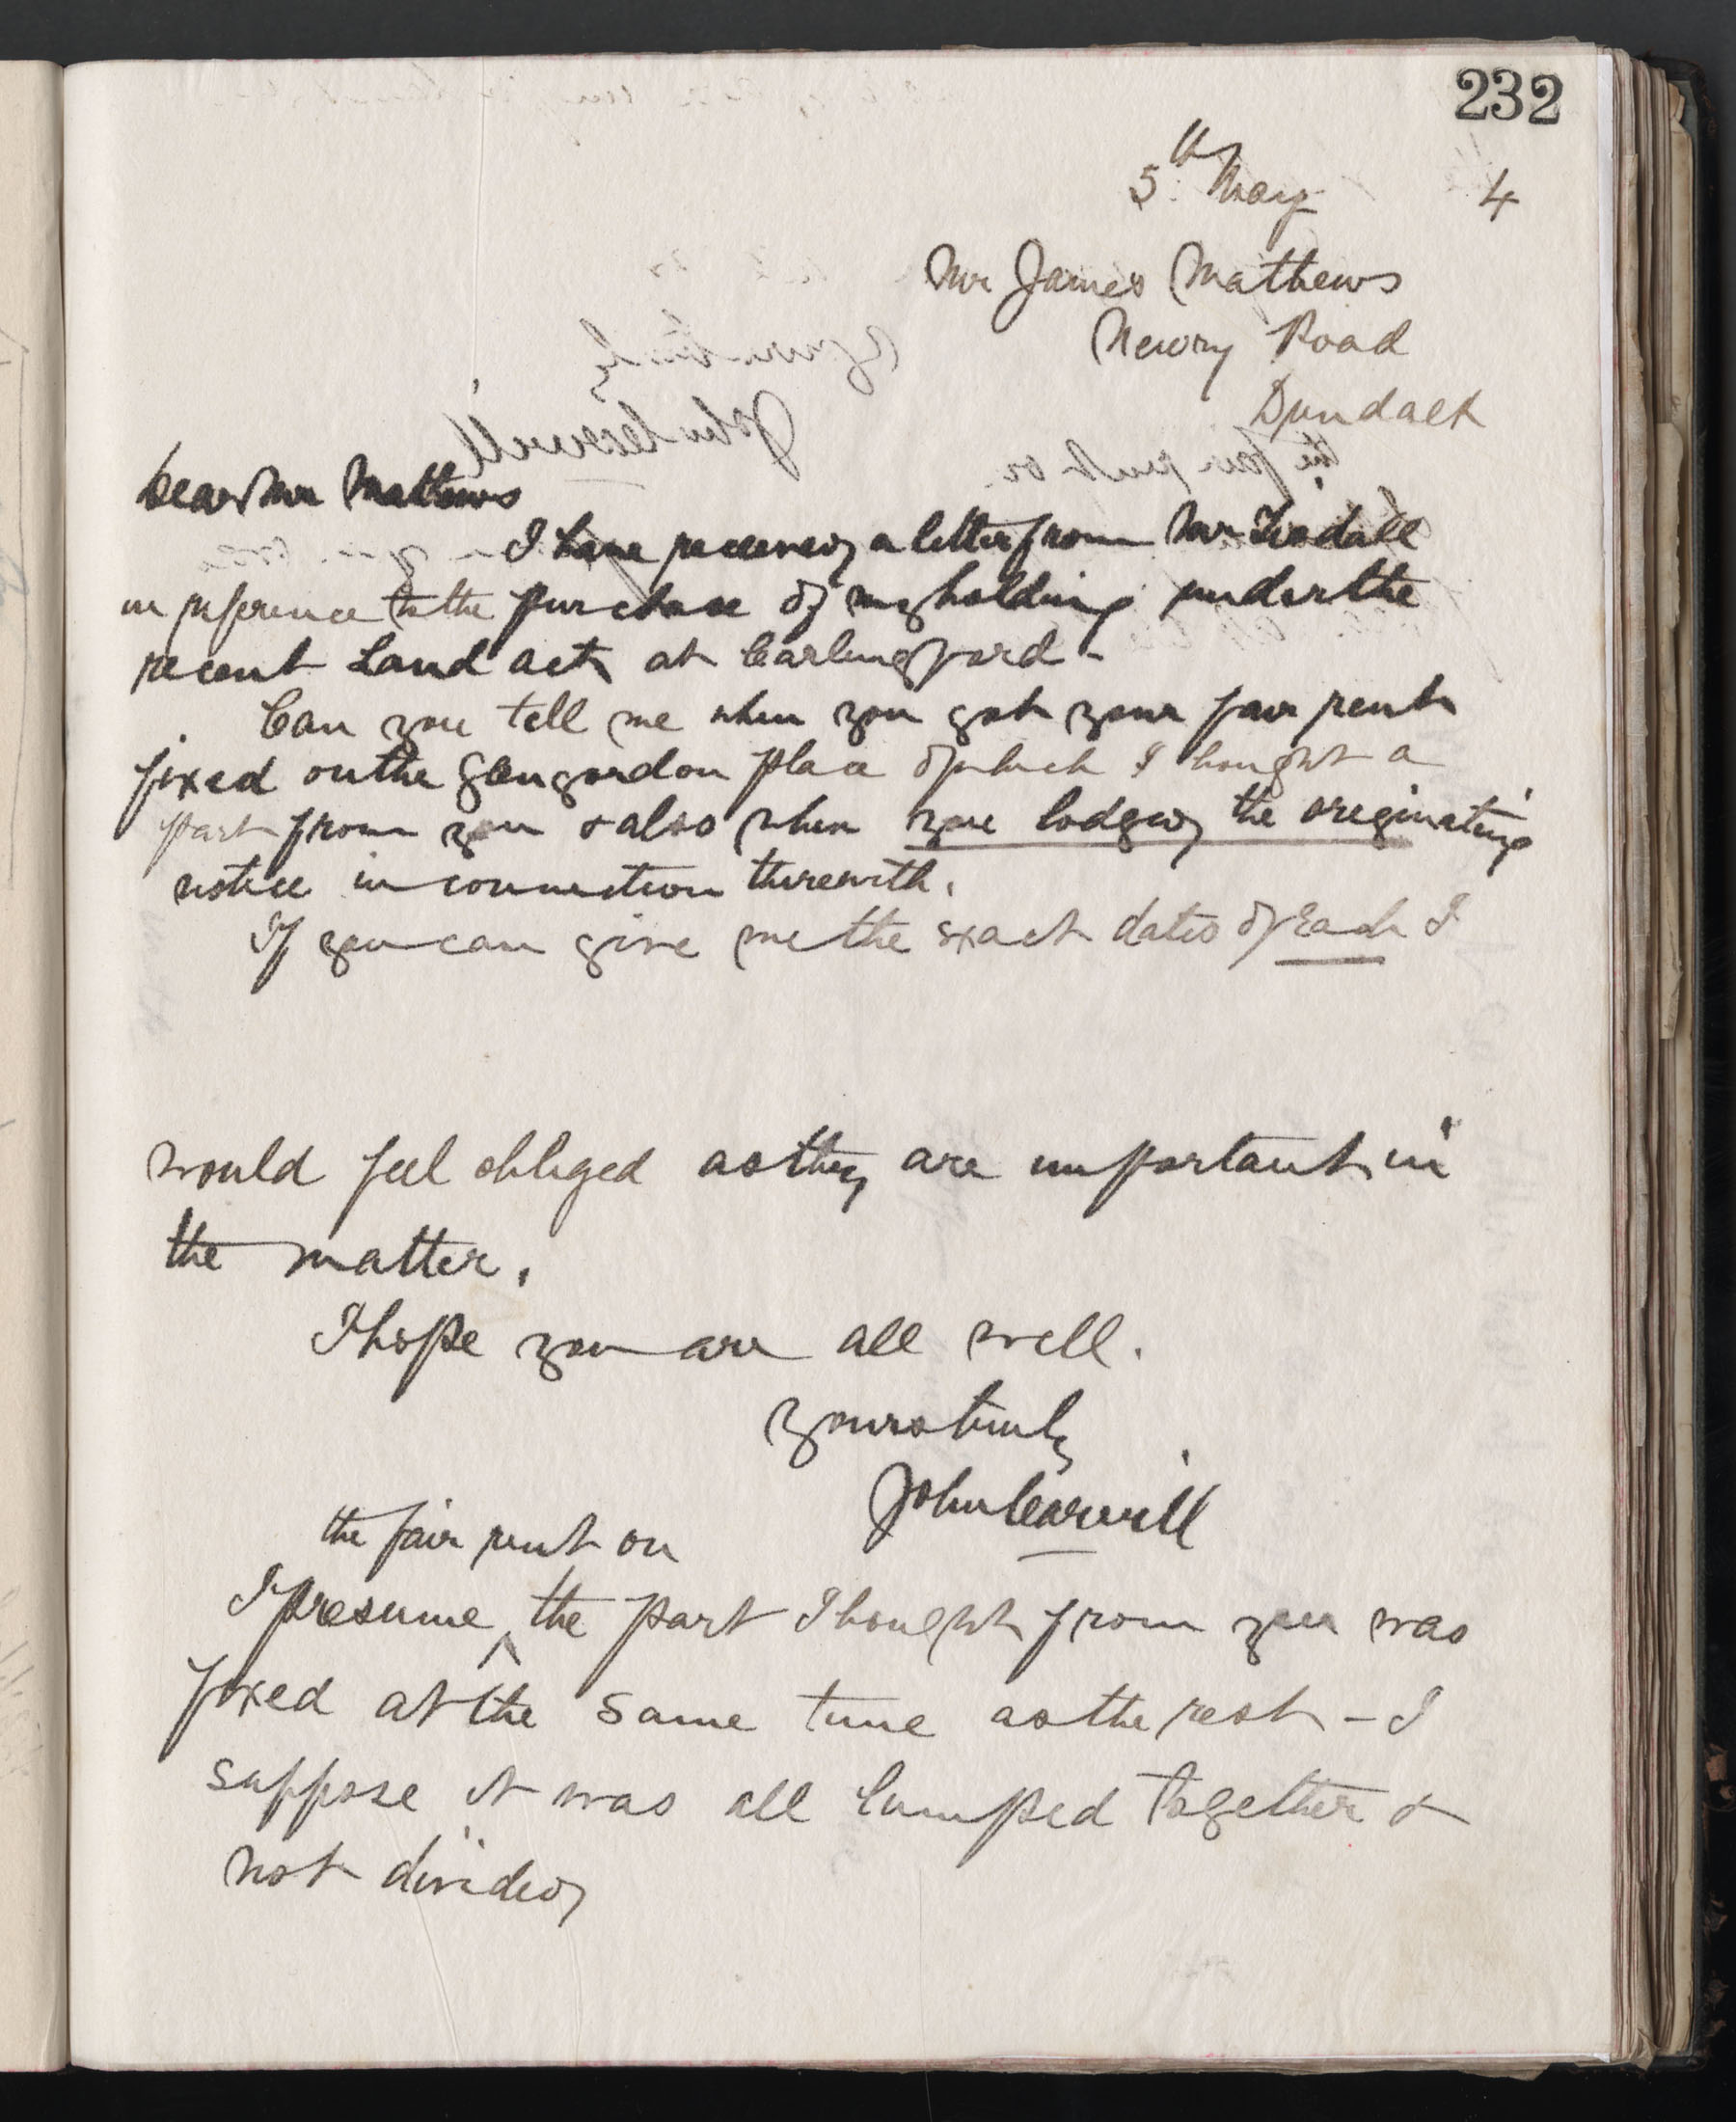 232
5th May 4
Mr James Mathews
Newry Road
Dundalk
Dear Mr Mathews
I have received a letter from Mr Tisdall
in reference to the purchase of my holding under the
recent Land act at Carlingford -
Can you tell me when you got your fair rent
fixed on the place of which I bought a
part from you & also when you lodged the originating
notice in connection therewith.
If you can give me the exact dates of each I
would feel obliged as they are important in
the matter.
I hope you are all well.
Yours truly
John Carvill
the fair rent on
I presume ^ the part I bought from you was
fixed at the same time as the rest - I
suppose it was all lumped together &
not divided